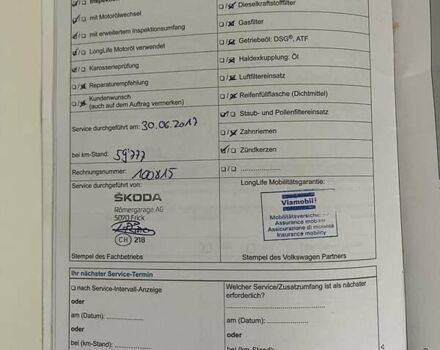 Inspektion
mit Motorölwechsel
mit erweitertem Inspektionsumfang
LongLife Motoröl verwendet
Karosserieprüfung
Reparaturempfehlung
Kundenwunsch
(auch auf dem Auftrag vermerken)
Service durchgeführt am: 30.06.2017
bei km-Stand: 59'777
Rechnungsnummer: 100815
Service durchgeführt von:
ŠKODA
Römergarage AG
5070 Frick
CH 218
Stempel des Fachbetriebs
Dieselkraftstofffilter
Gasfilter
Getriebeöl: DSG®, ATF
Haldexkupplung: Öl
Luftfiltereinsatz
Reifenfüllflasche (Dichtmittel)
Staub- und Pollenfiltereinsatz
Zahnriemen
Zündkerzen
LongLife Mobilitätsgarantie:
Viamobil
Mobilitätsversicherung
Assurance mobilité
Assicurazione di mobilità
Insurance mobility
Stempel des Volkswagen Partners
Ihr nächster Service-Termin
nach Service-Intervall-Anzeige
oder
am (Datum):
oder
bei (km-Stand):
Welcher Service/Zusatzumfang ist als nächster
erforderlich?
am (Datum):
oder
bei (km-Stand):